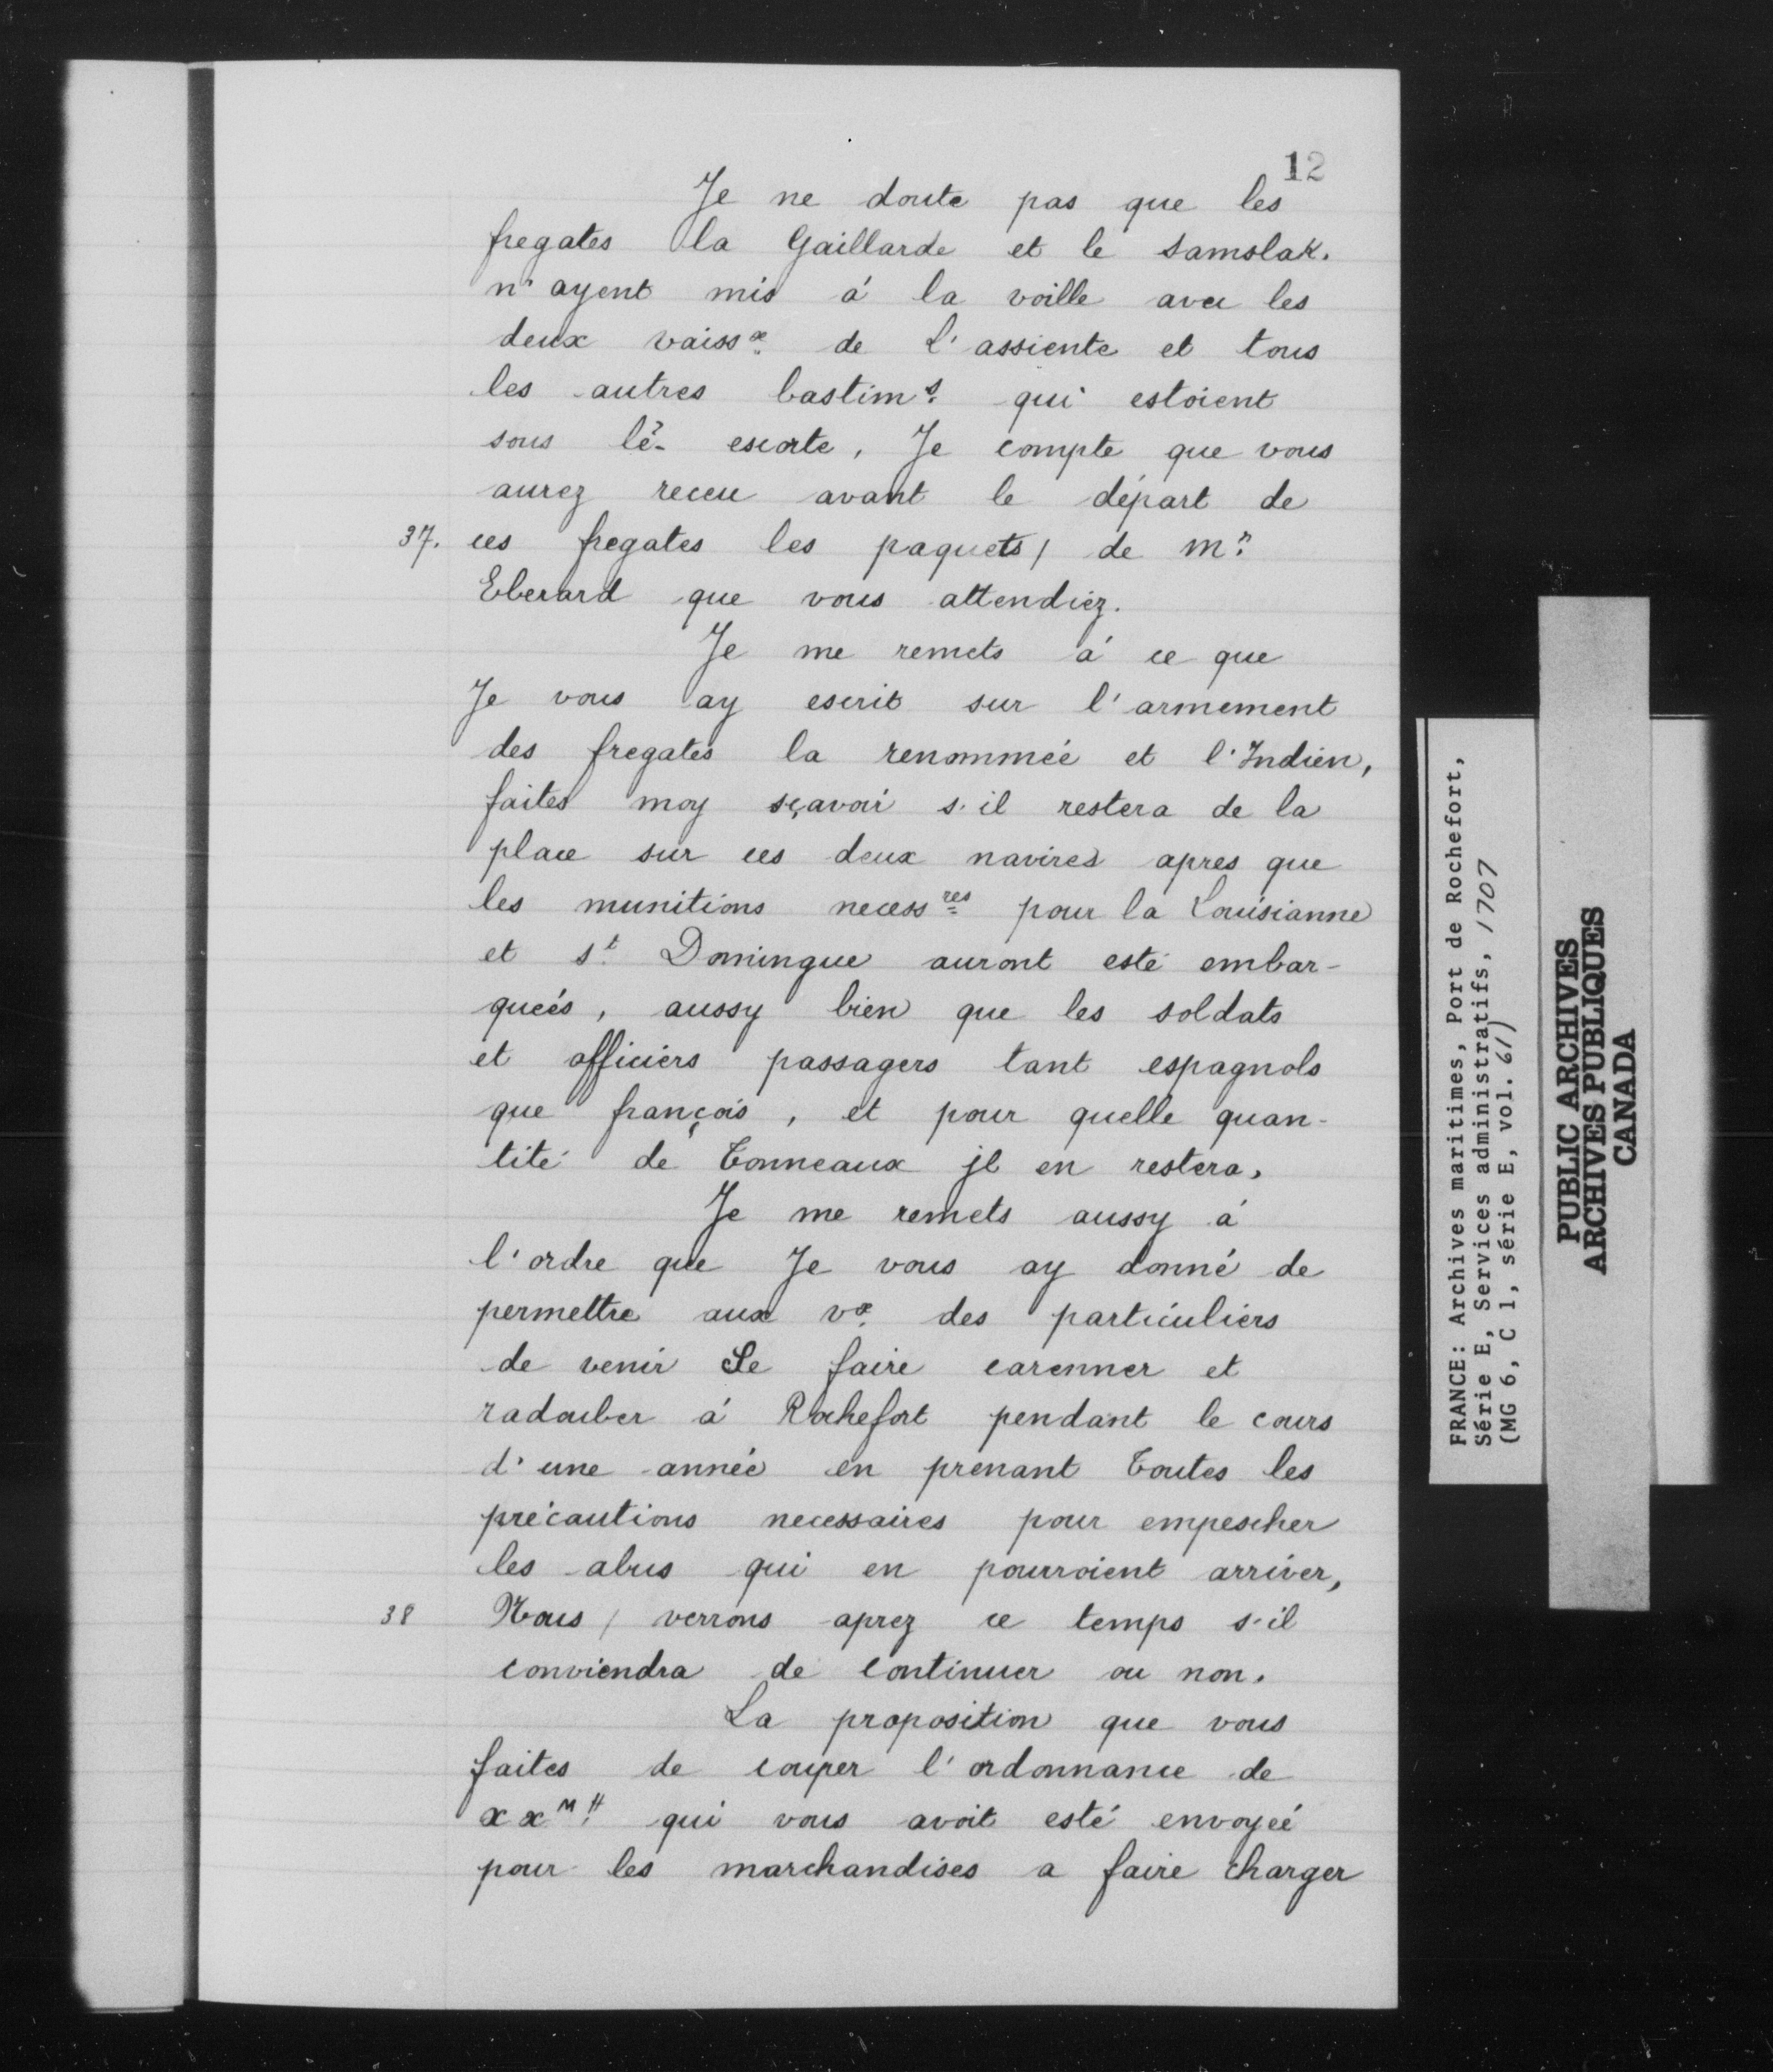 12
Je ne doute pas que les
fregates la Gaillarde et le Samslak.
n'ayent mis á la voille avec les
deux vaissx. de L'assiente et tous
les autres bastims. qui estoient
sous escorte, Je compte que vous
aurez receu avant le départ de
37. ces fregates les paquets / de Mr.
Eberard que vous attendiez.
Je me remets á ce que
Je vous ay escrit sur l'armement
des fregates la renommée et l'Indien,
faites moy sçavoir s'il restera de la
place sur ces deux navires apres que
les munitions necessres pour la Louisianne
et St. Domingue auront esté embar-
queés, aussy bien que les soldats
et officiers passagers tant espagnols
que françois, et pour quelle quan-
tité de Tonneaux jl en restera,
Je me remets aussy á
l'ordre que Je vous ay donné de
permettre aux vx. des particuliers
de venir Se faire carenner et
radouber á Rochefort pendant le cours
d'une année en prenant Toutes les
précautions necessaires pour empescher
les abus qui en pourroient arriver,
38 Nous / verrons aprez ce temps s'il
conviendra de continuer ou non.
La proposition que vous
faites de couper l'ordonnance de
xxM.H qui vous avoit esté envoyeé
pour les marchandises a faire charger
FRANCE: Archives maritimes, Port de Rochefort,
Série E, Services administratifs, 1707
(MG 6, C 1, série E, vol. 61)
PUBLIC ARCHIVES
ARCHIVES PUBLIQUES
CANADA